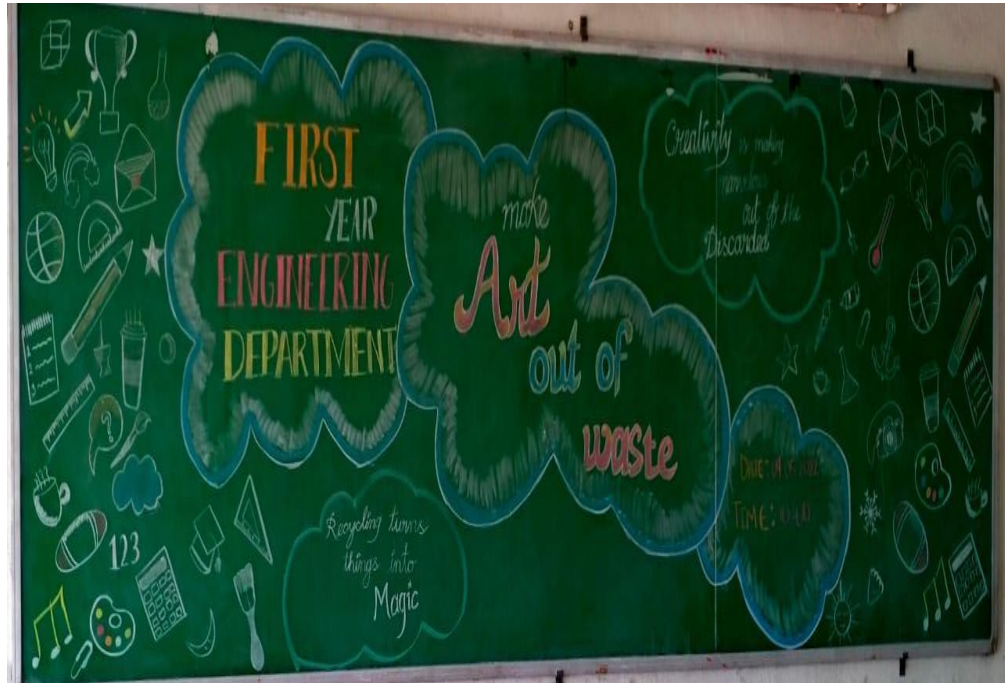 FIRST
YEAR
ENGINEERING
DEPARTMENT
make
Art
out of
waste
Creativity is making
marvelous
out of the
Discarded
Recycling turns
things into
Magic
DATE:
TIME:
123
1
2
3
?